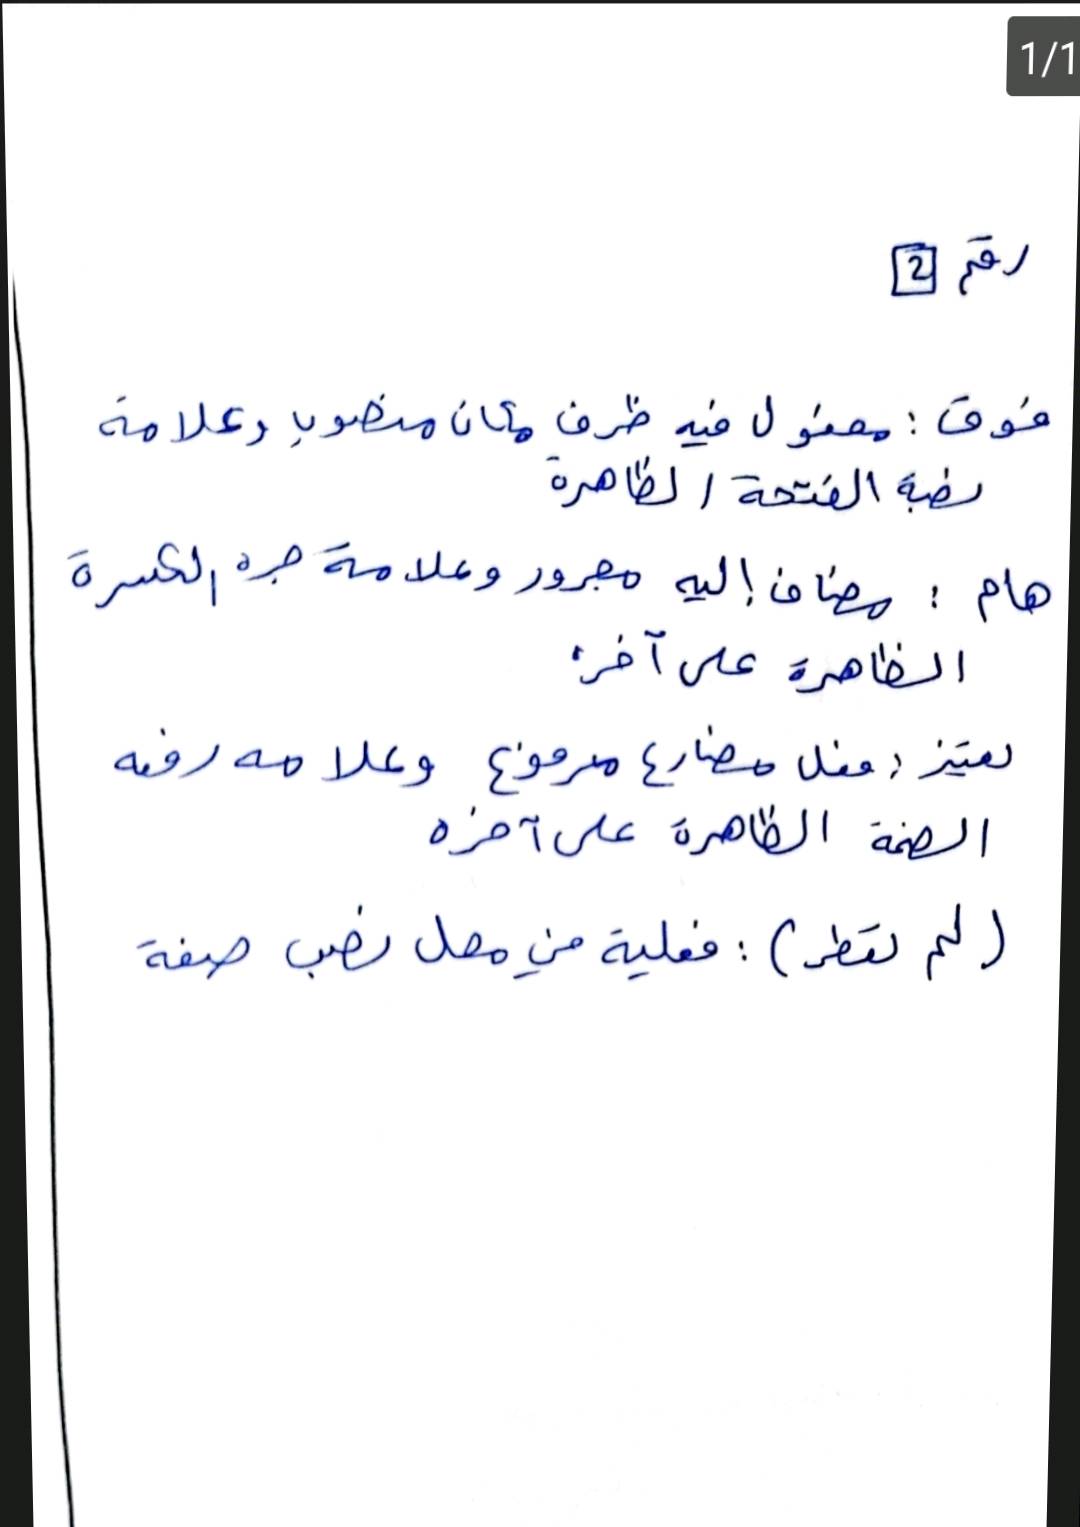 1/1
رقم 2
فوق : مفعول فيه ظرف مكان منصوب وعلامة
نصبة الفتحة الظاهرة
هام : مضاف إليه مجرور وعلامة جره الكسرة
الظاهرة على آخره
تعتز : فعل مضارع مرفوع وعلامه رفعه
الضمة الظاهرة على آخره
(لم تقطر) : فعلية في محل نصب صفة